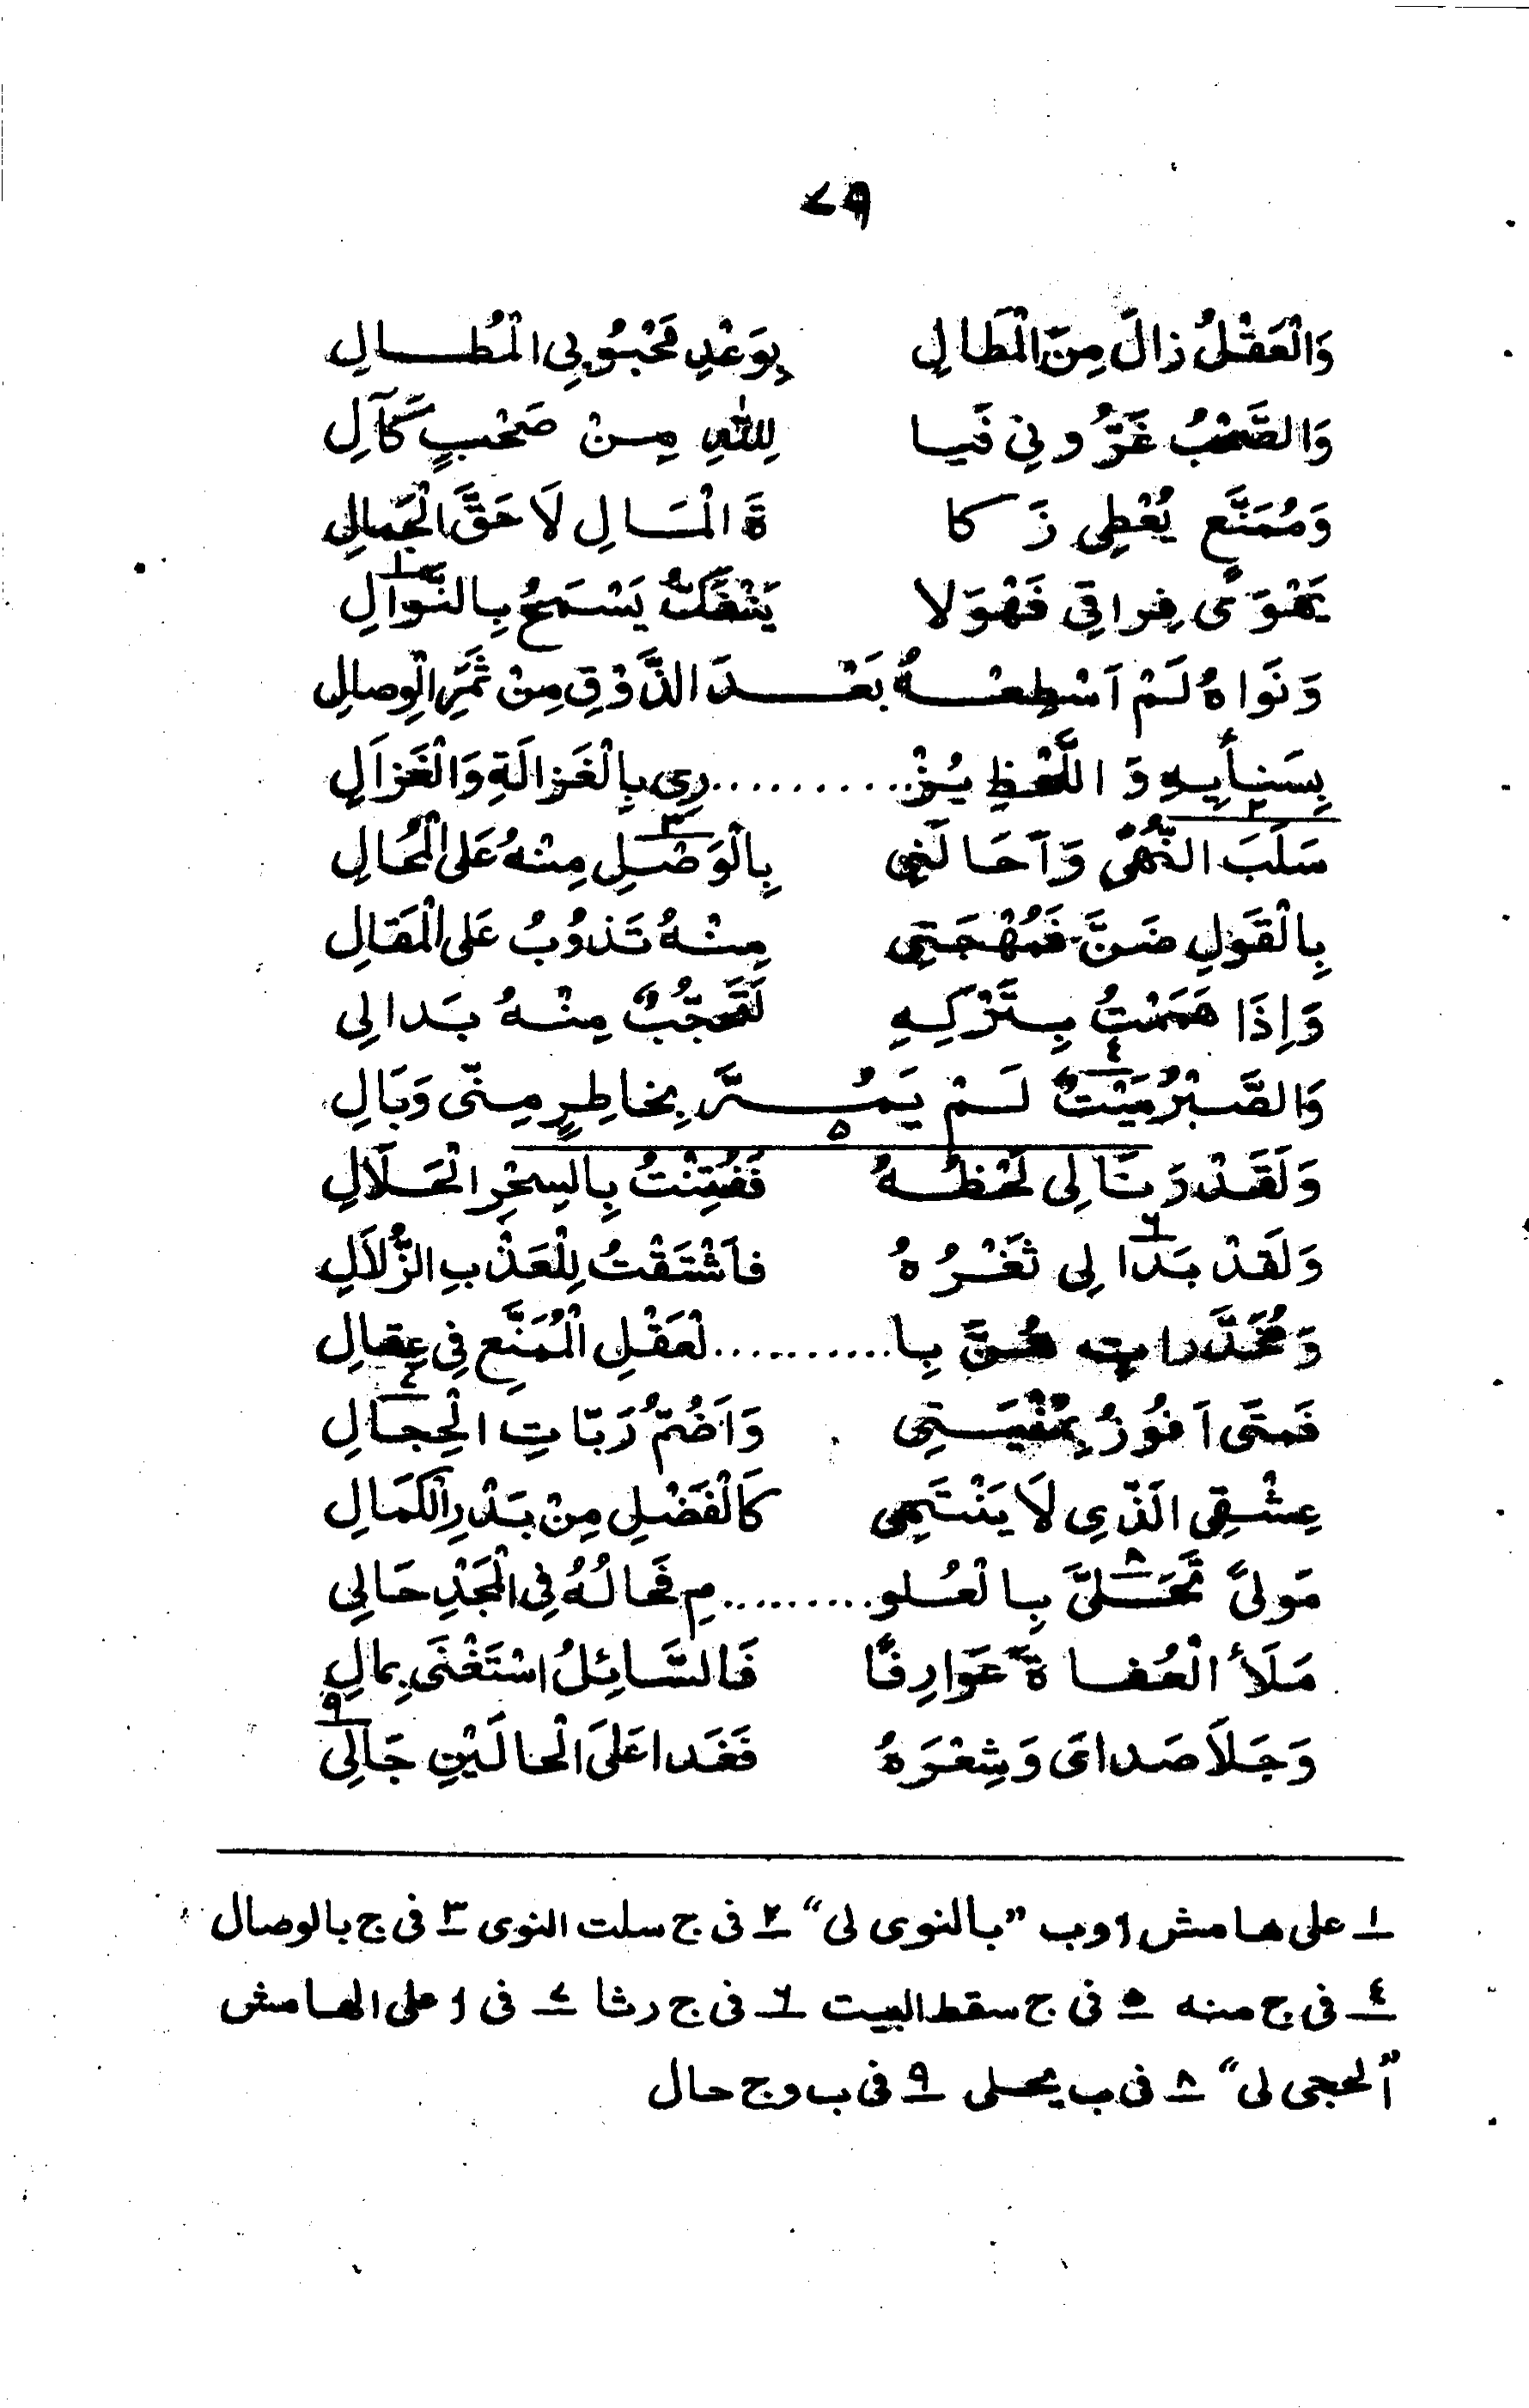 ٧٩
وَالْعَقْلُ زالَ مِنَ الْمَطَالِ بِوَعْدِ مَحْبُوبِي الْمُطالِ
وَالصَّحْبُ غَرُّونِي فَيا لِلّٰهِ مِنْ صَحْبٍ كَآلِ
وَمُمَنَّعٍ يُعْطِي زَكا ةَ الْمَالِ لَا حَقَّ الْجَمالِ
يَهْوَى فِراقِي فَهْوَ لا يَنْفَكُّ يَسْمَحُ بِالنَّوالِ ١
وَنَواهُ لَمْ اَسْطِعْهُ بَعْدَ الذَّوْقِ مِنْ ثَمَرِ الْوِصالِ
بِسَنائِهِ وَاللَّحْظِ يُزْ..........رِي بِالْغَزالَةِ وَالْغَزَالِ
سَلَبَ النُّهَى ٢ وَاَحَالَنِي بِالْوَصْلِ ٣ مِنْهُ عَلَى الْمُحَالِ
بِالْقَوْلِ ضَنَّ فَمُهْجَتِي مِنْهُ تَذُوبُ عَلَى الْمَقالِ
وَاِذَا هَمَمْتُ بِتَرْكِهِ لَتَعَجُّبٌ مِنْهُ بَدا لِي
وَالصَّبْرُ مَيْتٌ ٤ لَمْ يَمُرَّ بِخاطِرٍ مِنّى وَبَالِ
وَلَقَدْ رَنَا لِى لَحْظُهُ ٥ فَفُتِنْتُ بِالسِحْرِ الْحَلَالِ
وَلَقَدْ بَدا ٦ لِى ثَغْرُهُ فاَشْتَقْتُ لِلْعَذْبِ الزُّلاَلِ
وَمُخَدَّراتٍ هُنَّ بِا..........لْعَقْلِ الْمُمَنَّعِ فِي عِقالِ
فَمتَى اَفُوزُ بِمُنْيَتِي وَاَضُمُّ رَبّاتِ الْحِجالِ ٧
عِشْقِى الَذّي لَا يَنْتَهِى كَالْفَضْلِ مِنْ بَدْرِ الْكَمَالِ
مَولىً تَحَلَّىَ ٨ بِالْعُلو.........مِ فَحالُهُ فِي الْمَجْدِ حَالِي
مَلَأ الْعُفاةَ عَوَارِفًا فَالسَّائِلُ اسْتَغْنَى بِمالِ
وَجَلاَ صَداىَ وَشِعْرَهُ فَغَدا عَلىَ الْحالَيْنِ جَالِي ٩
١ على هامش ا وب "بالنوى لى" ٢ فى ج سلت النوى ٣ فى ج بالوصال
٤ فى ج منه ٥ فى ج سقط البيت ٦ فى ج رشا ٧ فى ا على الهامش
"الحجى لى" ٨ فى ب يحلى ٩ فى ب وج حال